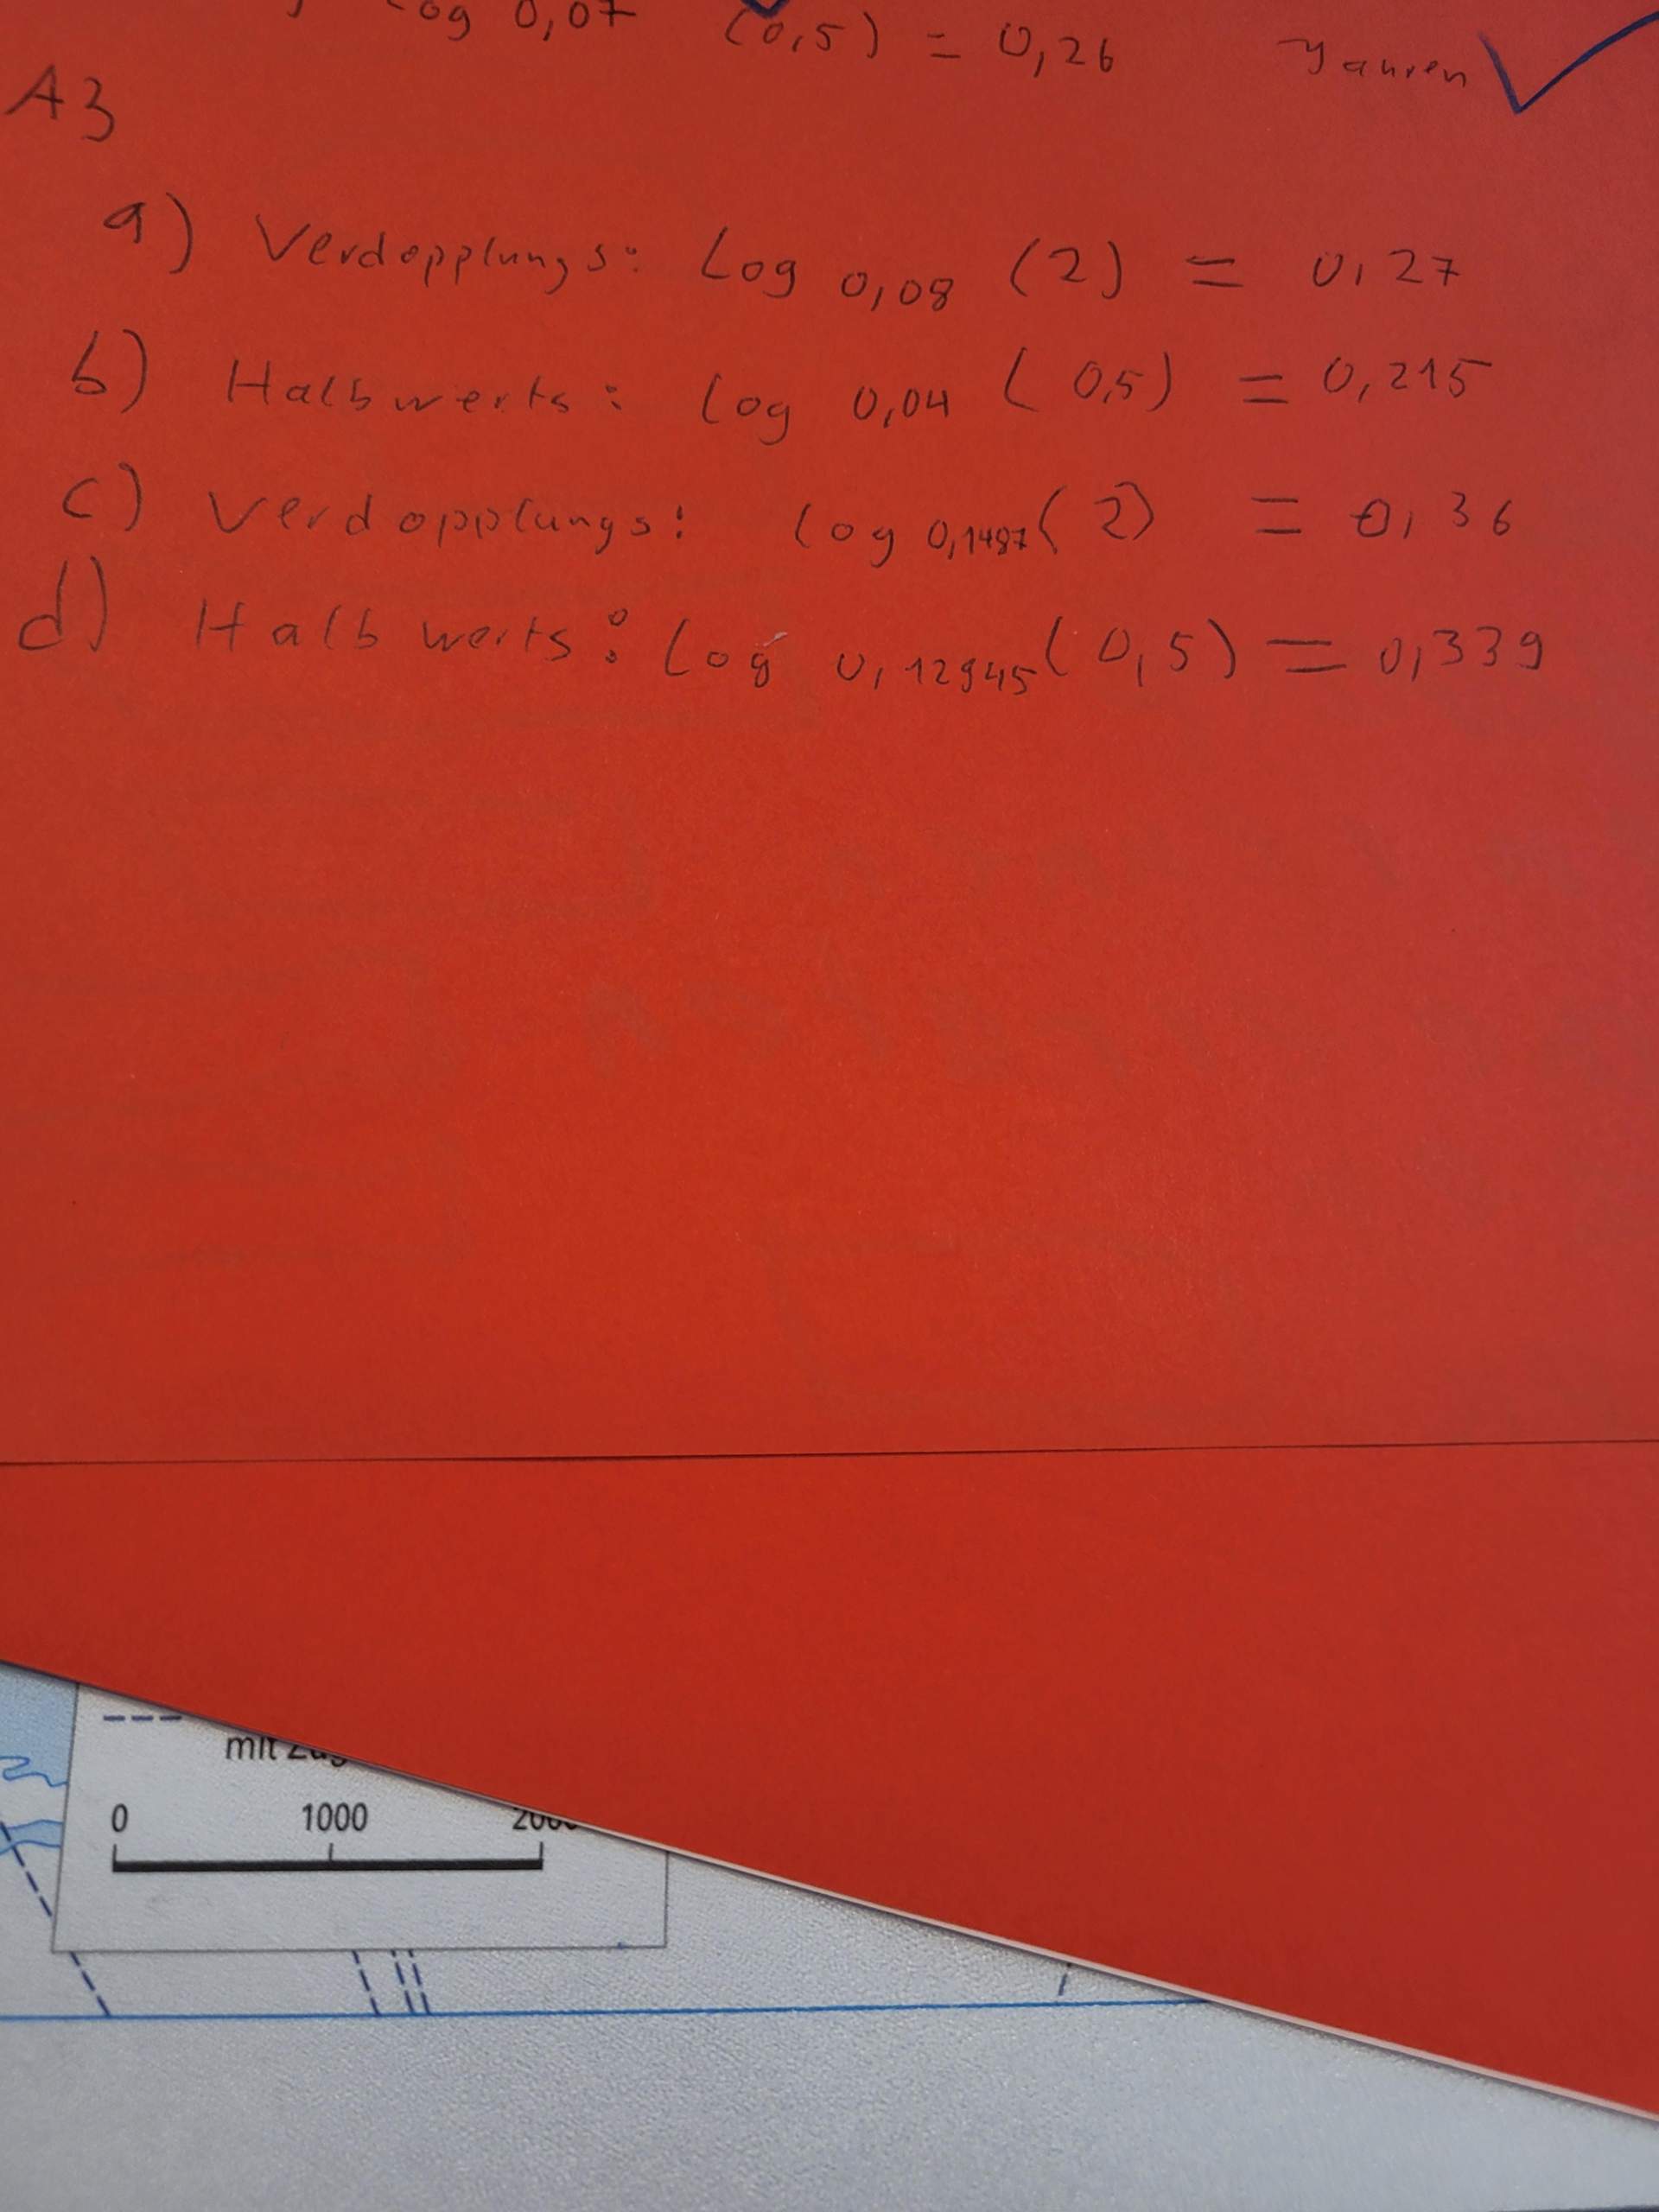 log 0,07 (0,5) = 0,26 Jahren
A3
a) Verdopplungs: Log 0,08 (2) = 0,27
b) Halbwerts: Log 0,04 (0,5) = 0,215
c) Verdopplungs: log 0,1487 (2) = 0,36
d) Halbwerts: Log 0,12945 (0,5) = 0,339
mit
0 1000